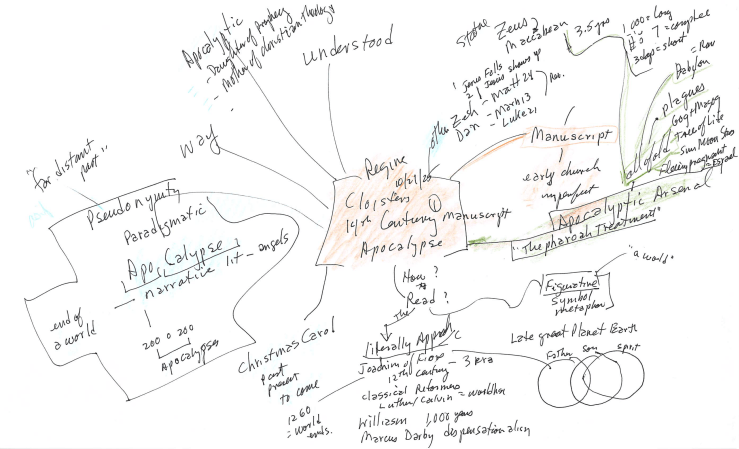 Apocalyptic
- Daughter of prophecy
- Mother of christian theology
understood
way
"far distant past"
Pseudonymity
Paradigmatic
Apocalypse
narrative lit - angels
end of
a world
200 0 200
Apocalypses
Regine
10/21/20
Cloisters ①
14th Century Manuscript
Apocalypse
Statue Zeus
maccabean
3.5 yrs
1,000 = long
#'s 7 = complete
3 days = short
1 Jerus Falls
2 Jesus shows up
other
Zech - Matt 24
Dan - Mark 13
- Luke 21
Rev.
Manuscript
early church
imperfect
= Rom
Babylon
plagues
Gog + Magog
Tree of Life
Sun Moon Stars
pregnant
= Israel
all of old
Apocalyptic Arsenal
"The pharoah Treatment"
How?
Read?
The
Figurative
symbol
metaphor
"a world"
Literally Approach
Joachim of Fiore - 3 era
12th Century
classical Reformers
Luther/Calvin =
William 1,000 years
Marcus Darby dispensationalism
Late great Planet Earth
Father Son Spirit
Christmas Carol
past
present
to come
1260
= world
ends.